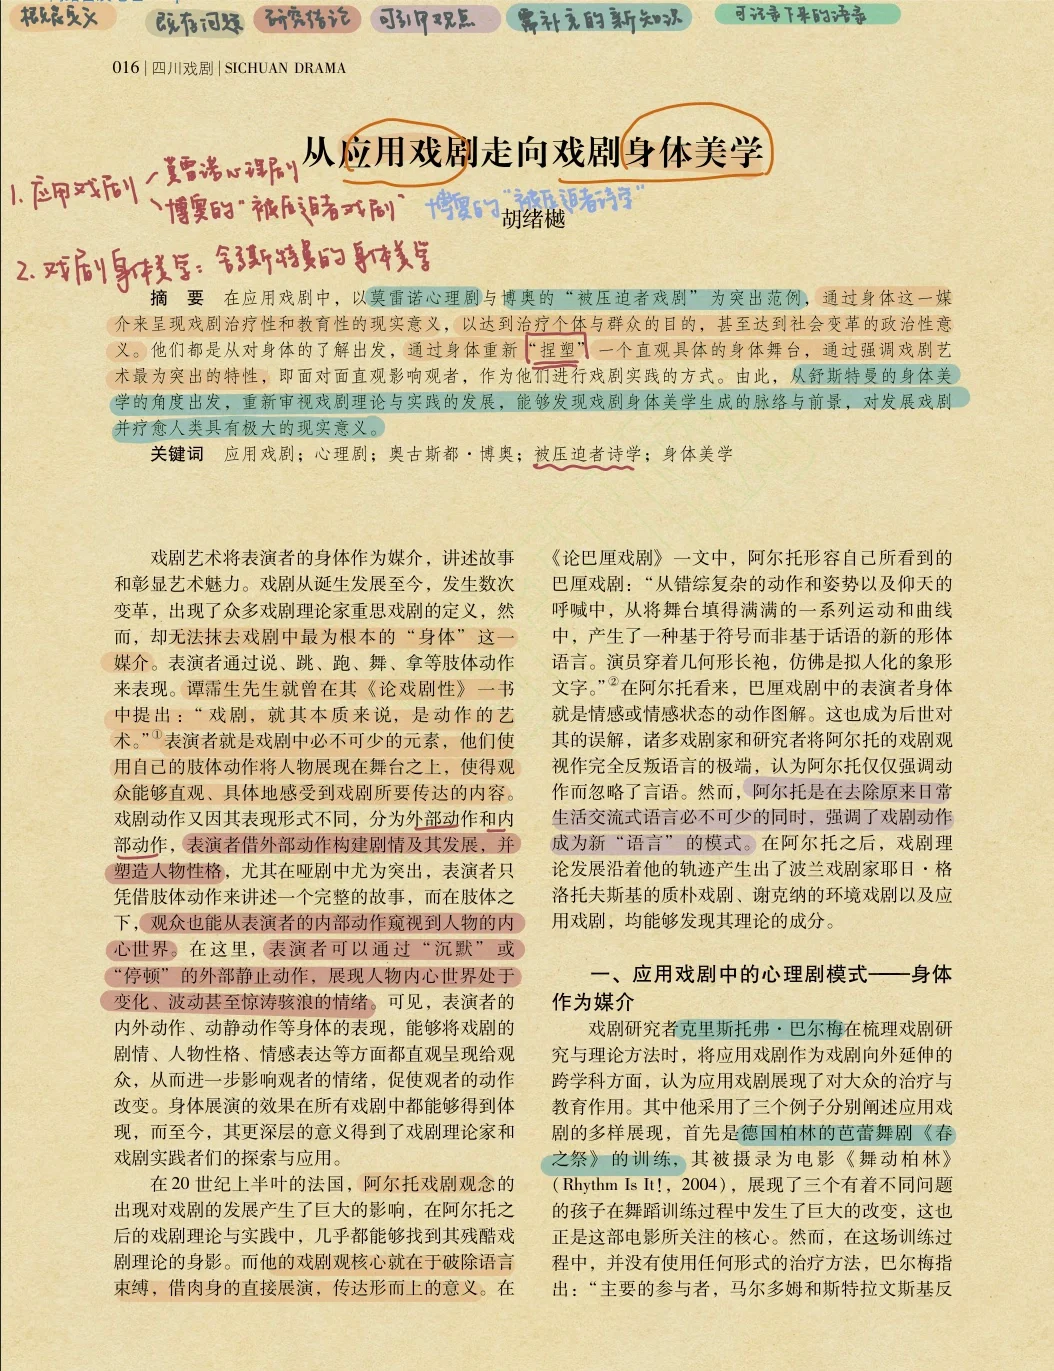 根据意义 既有问题 研究结论 可引用观点 需补充的新知识 可记录下来的语录
016 | 四川戏剧 | SICHUAN DRAMA
从应用戏剧走向戏剧身体美学
1. 应用戏剧
莫雷诺心理剧
博奥的“被压迫者戏剧”
博奥的“被压迫者诗学”
胡绪樾
2. 戏剧身体美学：舒斯特曼的身体美学
摘 要 在应用戏剧中，以莫雷诺心理剧与博奥的“被压迫者戏剧”为突出范例，通过身体这一媒
介来呈现戏剧治疗性和教育性的现实意义，以达到治疗个体与群众的目的，甚至达到社会变革的政治性意
义。他们都是从对身体的了解出发，通过身体重新“捏塑”一个直观具体的身体舞台，通过强调戏剧艺
术最为突出的特性，即面对面直观影响观者，作为他们进行戏剧实践的方式。由此，从舒斯特曼的身体美
学的角度出发，重新审视戏剧理论与实践的发展，能够发现戏剧身体美学生成的脉络与前景，对发展戏剧
并疗愈人类具有极大的现实意义。
关键词 应用戏剧；心理剧；奥古斯都·博奥；被压迫者诗学；身体美学
戏剧艺术将表演者的身体作为媒介，讲述故事
和彰显艺术魅力。戏剧从诞生发展至今，发生数次
变革，出现了众多戏剧理论家重思戏剧的定义，然
而，却无法抹去戏剧中最为根本的“身体”这一
媒介。表演者通过说、跳、跑、舞、拿等肢体动作
来表现。谭霈生先生就曾在其《论戏剧性》一书
中提出：“戏剧，就其本质来说，是动作的艺
术。”①表演者就是戏剧中必不可少的元素，他们使
用自己的肢体动作将人物展现在舞台之上，使得观
众能够直观、具体地感受到戏剧所要传达的内容。
戏剧动作又因其表现形式不同，分为外部动作和内
部动作，表演者借外部动作构建剧情及其发展，并
塑造人物性格，尤其在哑剧中尤为突出，表演者只
凭借肢体动作来讲述一个完整的故事，而在肢体之
下，观众也能从表演者的内部动作窥视到人物的内
心世界。在这里，表演者可以通过“沉默”或
“停顿”的外部静止动作，展现人物内心世界处于
变化、波动甚至惊涛骇浪的情绪。可见，表演者的
内外动作、动静动作等身体的表现，能够将戏剧的
剧情、人物性格、情感表达等方面都直观呈现给观
众，从而进一步影响观者的情绪，促使观者的动作
改变。身体展演的效果在所有戏剧中都能够得到体
现，而至今，其更深层的意义得到了戏剧理论家和
戏剧实践者们的探索与应用。
在 20 世纪上半叶的法国，阿尔托戏剧观念的
出现对戏剧的发展产生了巨大的影响，在阿尔托之
后的戏剧理论与实践中，几乎都能够找到其残酷戏
剧理论的身影。而他的戏剧观核心就在于破除语言
束缚，借肉身的直接展演，传达形而上的意义。在
《论巴厘戏剧》一文中，阿尔托形容自己所看到的
巴厘戏剧：“从错综复杂的动作和姿势以及仰天的
呼喊中，从将舞台填得满满的一系列运动和曲线
中，产生了一种基于符号而非基于话语的新的形体
语言。演员穿着几何形长袍，仿佛是拟人化的象形
文字。”②在阿尔托看来，巴厘戏剧中的表演者身体
就是情感或情感状态的动作图解。这也成为后世对
其的误解，诸多戏剧家和研究者将阿尔托的戏剧观
视作完全反叛语言的极端，认为阿尔托仅仅强调动
作而忽略了言语。然而，阿尔托是在去除原来日常
生活交流式语言必不可少的同时，强调了戏剧动作
成为新“语言”的模式。在阿尔托之后，戏剧理
论发展沿着他的轨迹产生出了波兰戏剧家耶日·格
洛托夫斯基的质朴戏剧、谢克纳的环境戏剧以及应
用戏剧，均能够发现其理论的成分。
一、应用戏剧中的心理剧模式——身体
作为媒介
戏剧研究者克里斯托弗·巴尔梅在梳理戏剧研
究与理论方法时，将应用戏剧作为戏剧向外延伸的
跨学科方面，认为应用戏剧展现了对大众的治疗与
教育作用。其中他采用了三个例子分别阐述应用戏
剧的多样展现，首先是德国柏林的芭蕾舞剧《春
之祭》的训练，其被摄录为电影《舞动柏林》
(Rhythm Is It!，2004)，展现了三个有着不同问题
的孩子在舞蹈训练过程中发生了巨大的改变，这也
正是这部电影所关注的核心。然而，在这场训练过
程中，并没有使用任何形式的治疗方法，巴尔梅指
出：“主要的参与者，马尔多姆和斯特拉文斯基反